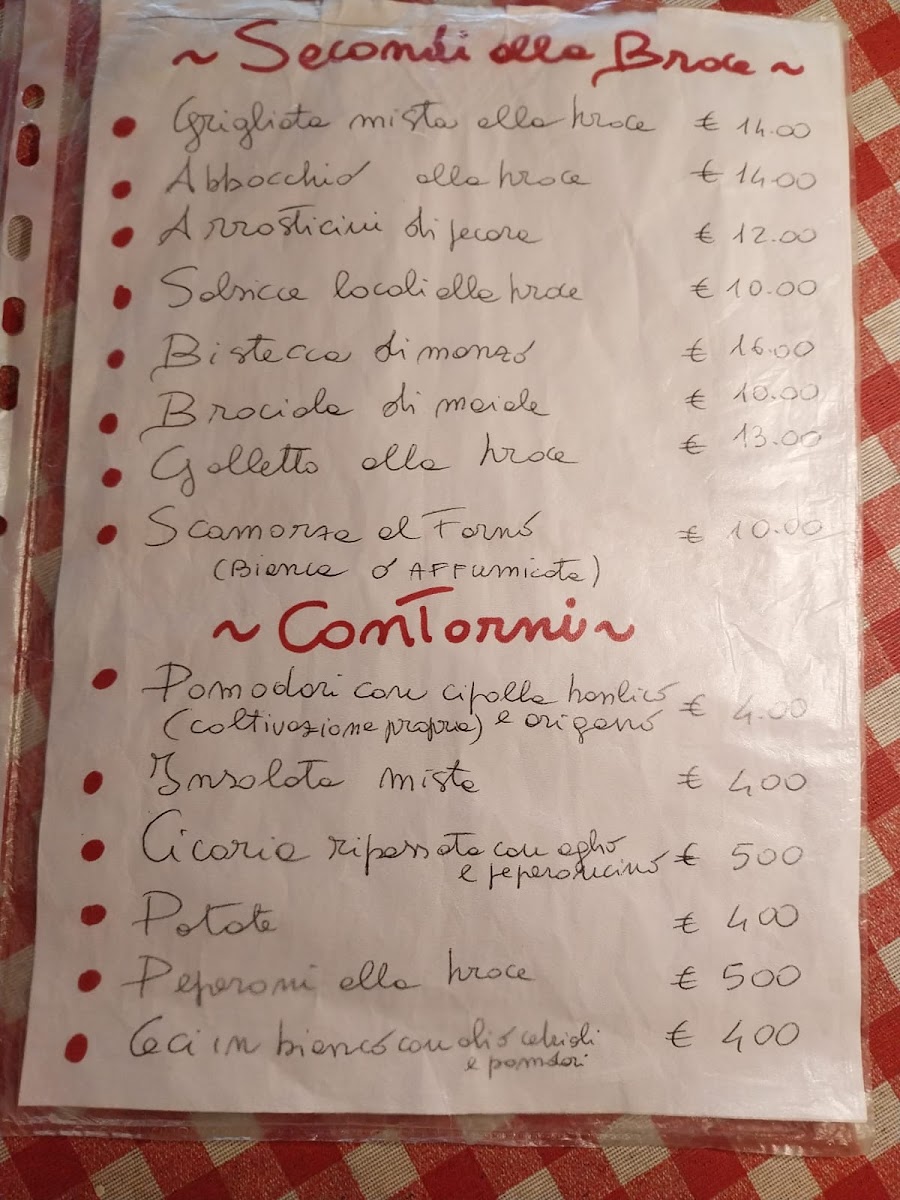 ~ Secondi alla Brace ~
Grigliata mista alla brace € 14.00
Abbacchio alla brace € 14.00
Arrosticini di pecora € 12.00
Salsicce locali alla brace € 10.00
Bistecca di manzo € 16.00
Braciola di maiale € 10.00
Galletto alla brace € 13.00
Scamorza al Forno € 10.00
(Bianca o AFFumicata)
~ ConTorni ~
Pomodori con cipolla basilico € 4.00
(coltivazione propria) e origano
Insalata mista € 400
Cicoria ripassata con aglio € 500
e peperoncino
Patate € 400
Peperoni alla brace € 500
Ceci in bianco con olio € 400
e pomodori